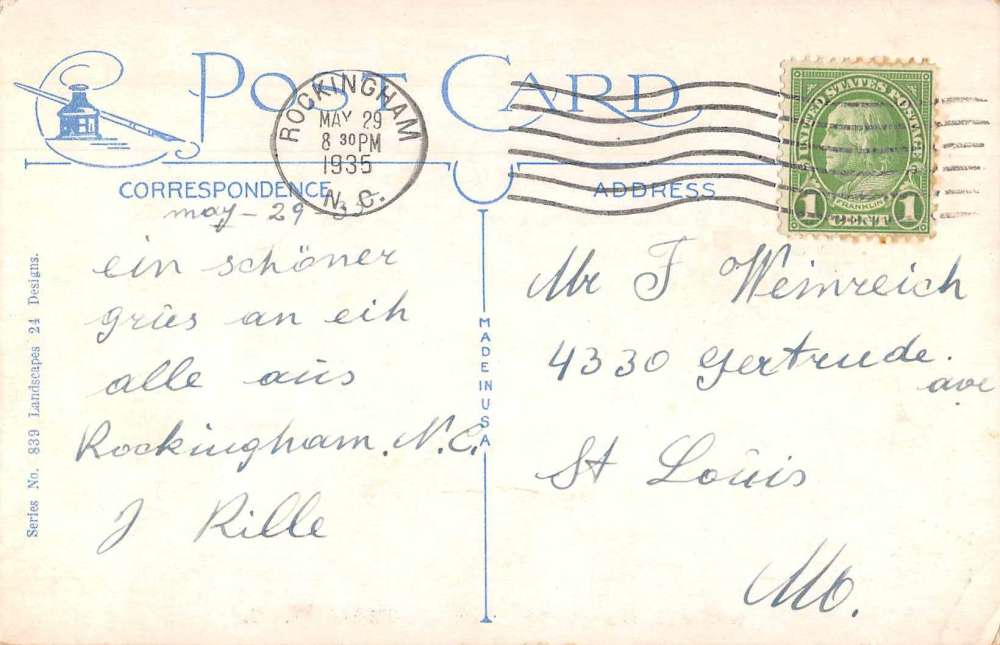 POST CARD
ROCKINGHAM
MAY 29
8 30 PM
1935
N. C.
UNITED STATES POSTAGE
FRANKLIN
1 CENT 1
CORRESPONDENCE
ADDRESS
may - 29 - 35
ein schöner
grüs an eih
alle aûs
Rockingham. N.C.
J Rille
MADE IN USA
Mr F Weinreich
4330 Gertrude.
ave
St Loûis
Mo.
Series No. 839 Landscapes 24 Designs.